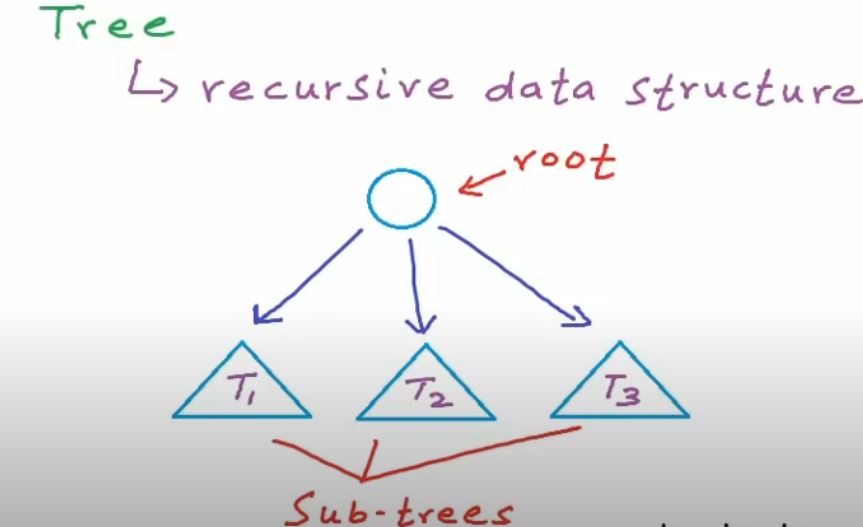 Tree
↳ recursive data structure
root
T1 T2 T3
Sub-trees